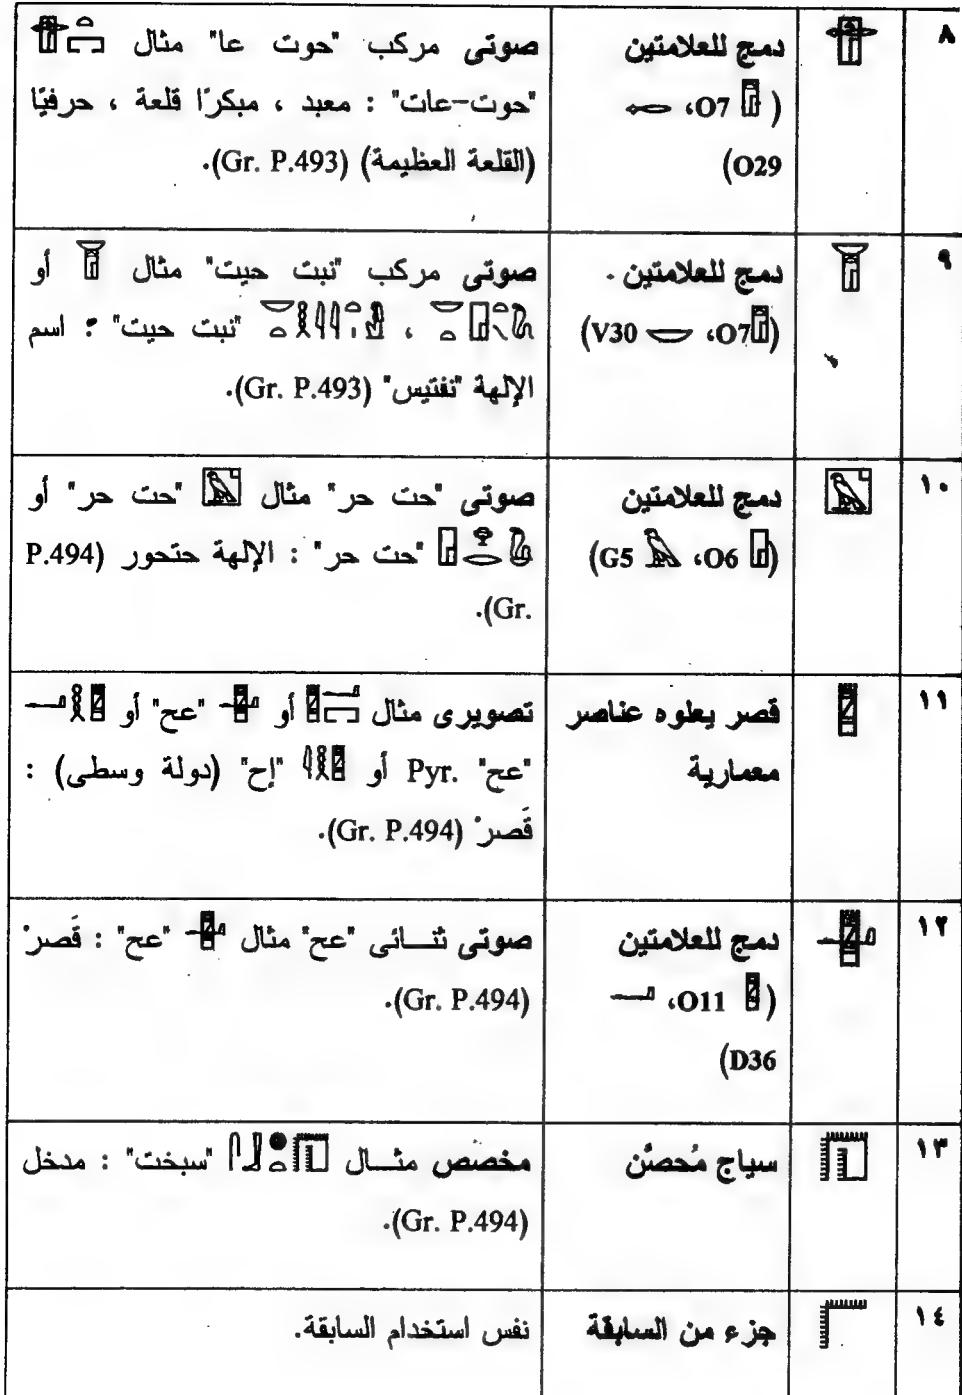 ٨
دمج للعلامتين
( 𓉗 O7، 𓉻
O29)
صوتى مركب "حوت عا" مثال
"حوت-عات" : معبد ، مبكرًا قلعة ، حرفيًا
(القلعة العظيمة) (Gr. P.493).
٩
دمج للعلامتين .
(𓉗O7، 𓎟 V30)
صوتى مركب "نبت حيت" مثال 𓉠 أو
، "نبت حيت" : اسم
الإلهة "نفتيس" (Gr. P.493).
١٠
دمج للعلامتين
(𓉗 O6، 𓅃 G5)
صوتى "حت حر" مثال 𓉡 "حت حر" أو
"حت حر" : الإلهة حتحور (P.494
Gr.).
١١
قصر يعلوه عناصر
معمارية
تصويرى مثال أو "عح" أو
"عح" Pyr. أو "إح" (دولة وسطى) :
قَصر (Gr. P.494).
١٢
دمج للعلامتين
( 𓉥 O11، 𓂝
D36)
صوتى ثنائى "عح" مثال 𓉦 "عح" : قَصر
(Gr. P.494).
١٣
سياج مُحصَّن
مخصص مثال "سبخت" : مدخل
(Gr. P.494).
١٤
جزء من السابقة
نفس استخدام السابقة.